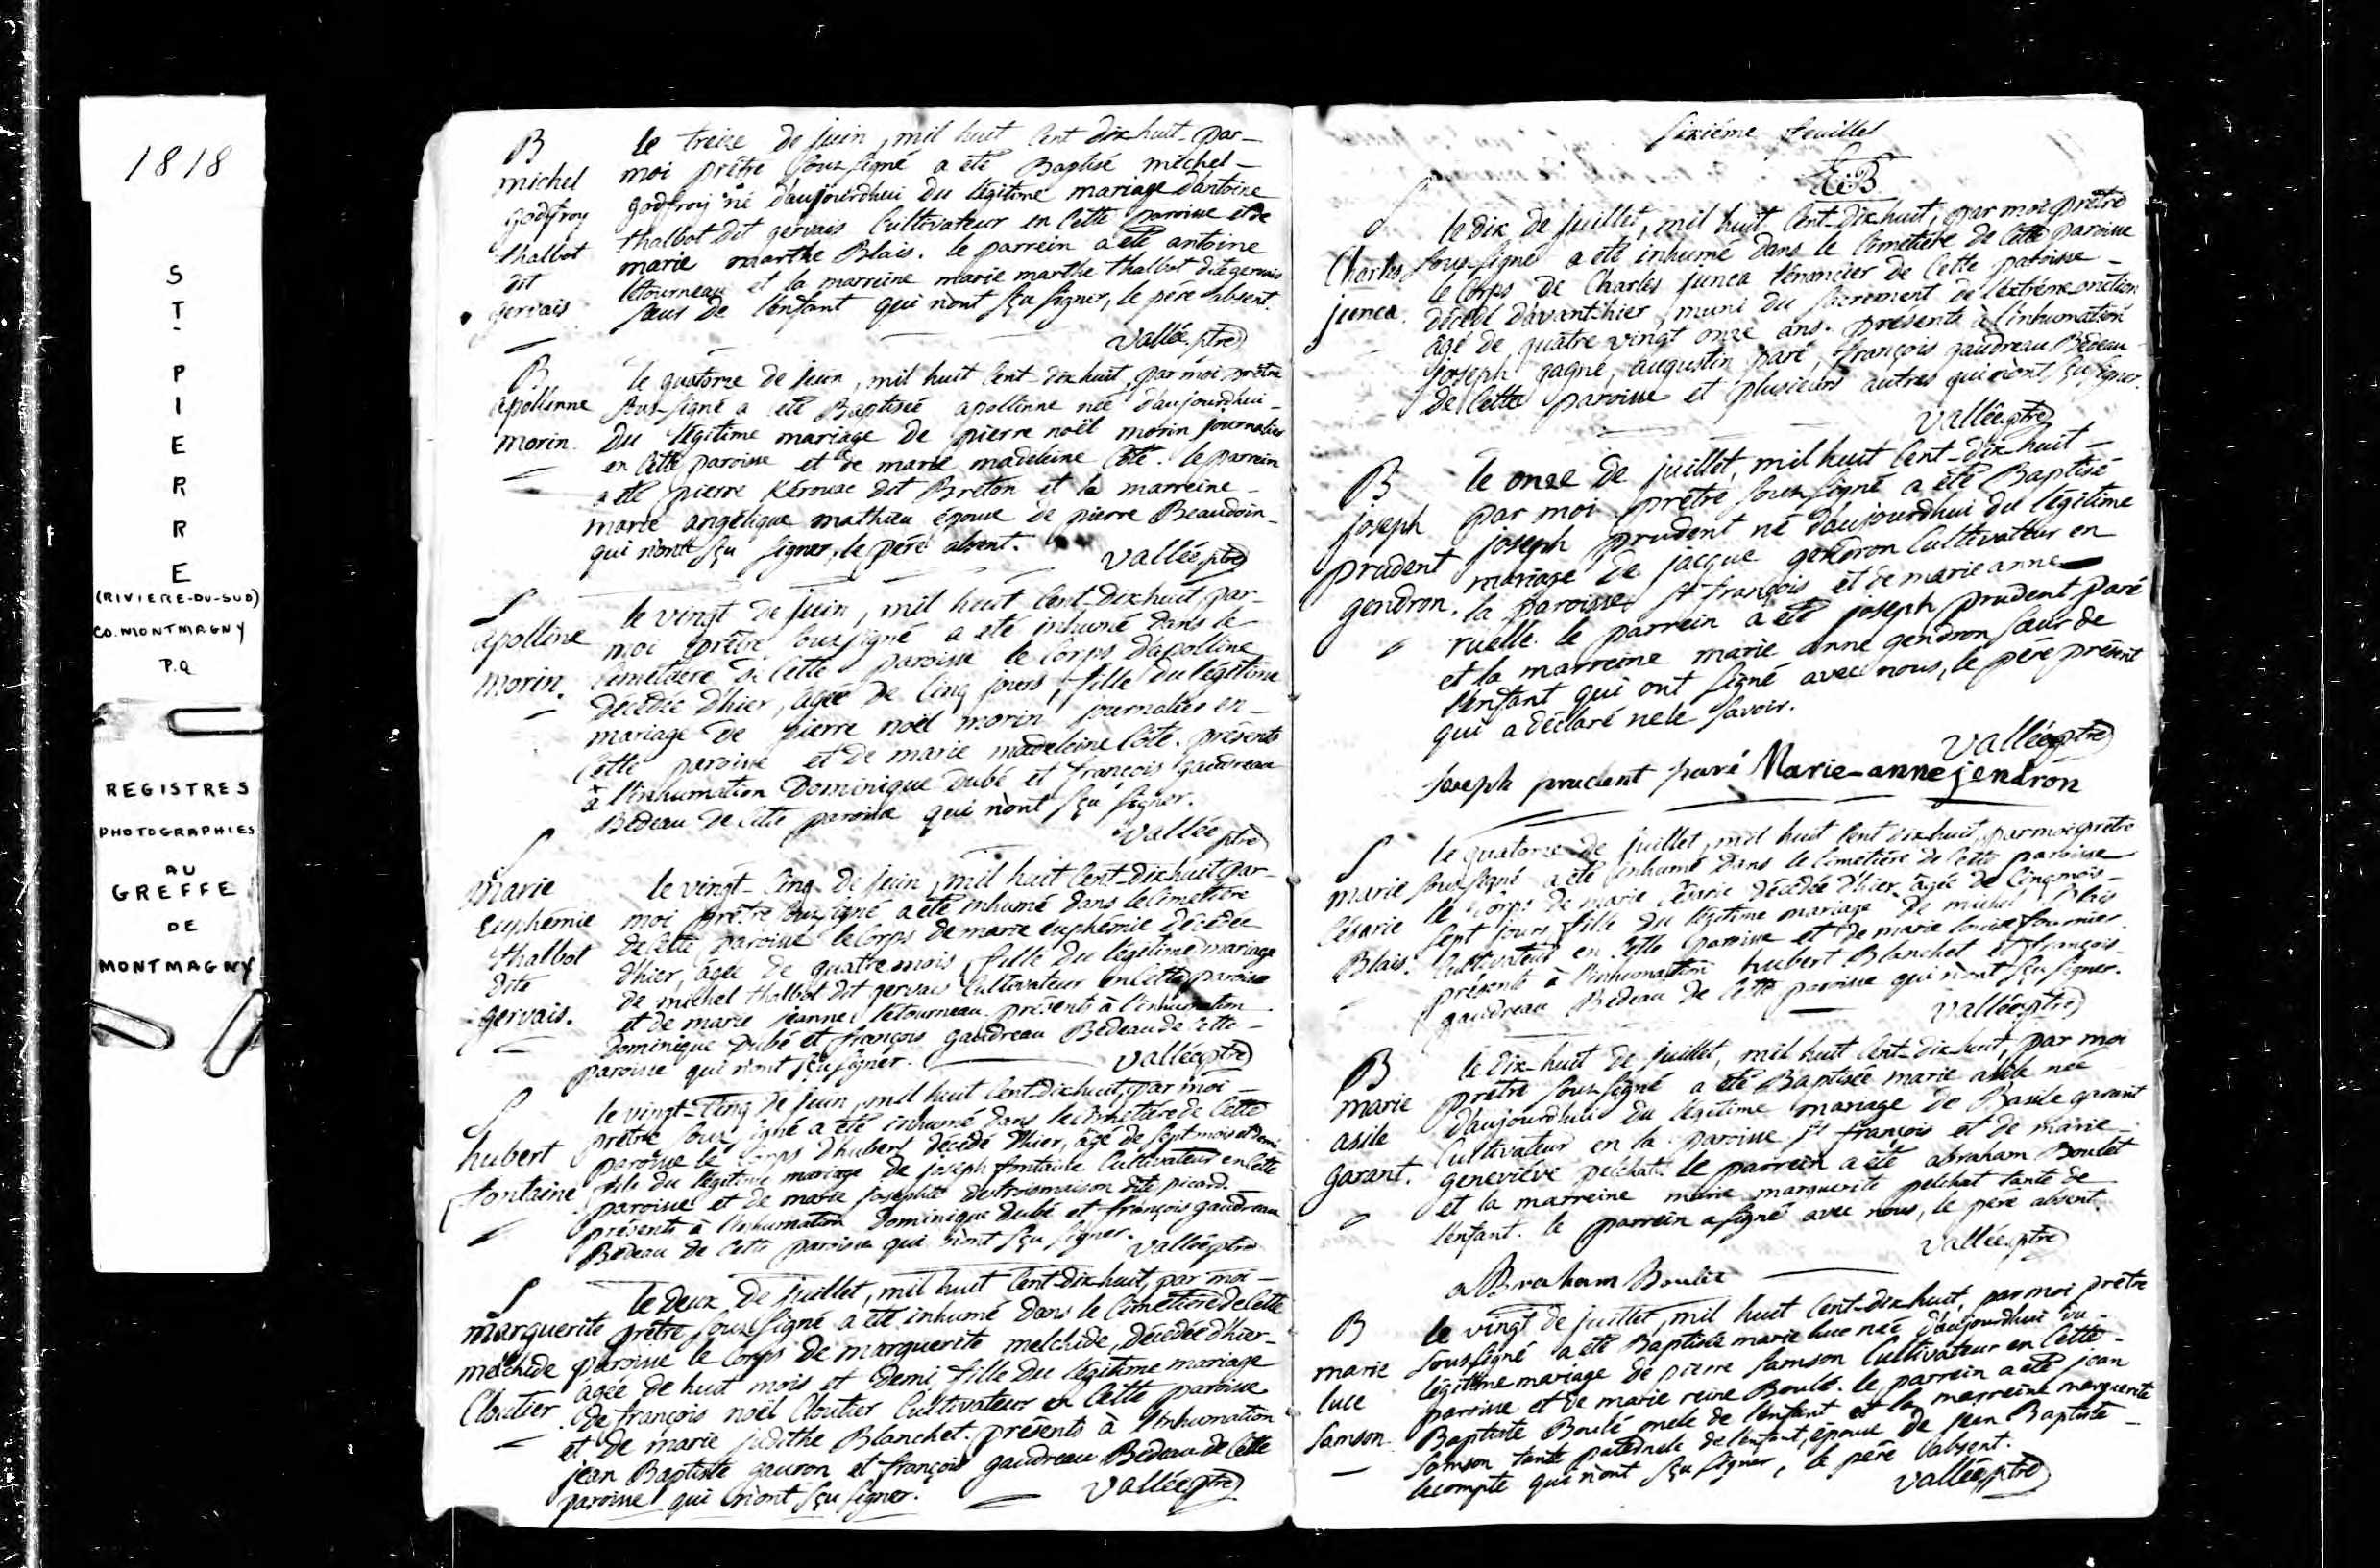 1818
ST
PIERRE
(RIVIERE-DU-SUD)
CO. MONTMAGNY
P.Q
REGISTRES
PHOTOGRAPHIES
AU
GREFFE
DE
MONTMAGNY
B
michel
godfroy
thalbot
dit
gervais
le treize de juin, mil huit Cent dix huit par
moi prêtre soussigné a eté Baptisé michel
godfroy né d'aujourdhui du légitime mariage d'antoine
thalbot dit gervais Cultivateur en Cette paroisse et de
marie marthe Blais. le parrein a eté antoine
letourneau et la marreine marie marthe thalbot dite gervais
sœur de l'enfant qui n'ont sçu signer, le pére absent.
Vallée ptre
B
apollinne
morin.
le quatorze de juin, mil huit Cent-dix huit, par moi prêtre
sous-signé a eté Baptisée apollinne née d'aujourdhui
du légitime mariage de pierre noël morin journalier
en Cette paroisse et de marie madeleine Côté. le parrein
a eté pierre Kérouac dit Breton et la marreine
marie angélique mathieu épouse de pierre Beaudoin
qui n'ont sçu signer, le pére absent.
Vallée ptre
S
apolline
morin.
le vingt de juin, mil huit Cent-dix huit, par
moi prêtre soussigné a eté inhumé dans le
Cimetiere de Cette paroisse le Corps d'apolline
décédée d'hier, agée de Cinq jours, fille du légitime
mariage de pierre noël morin journalier en
Cette paroisse et de marie madeleine Côté. présents
à l'inhumation Dominique Dubé et françois gaudreau
Bedeau de Cette paroisse qui n'ont sçu signer.
Vallée ptre
S
marie
Euphémie
thalbot
dite
gervais.
le vingt-Cinq de juin, mil huit Cent-dix huit par
moi prêtre soussigné a eté inhumé dans le Cimetiere
de Cette paroisse le Corps de marie euphémie décédée
d'hier, agée de quatre mois, fille du légitime mariage
de michel thalbot dit gervais Cultivateur en Cette paroisse
et de marie jeanne letourneau. présents à l'inhumation
Dominique Dubé et françois gaudreau Bedeau de Cette
paroisse qui n'ont sçu signer.
Vallée ptre
S
hubert
fontaine
le vingt-Cinq de juin, mil huit Cent-dix huit, par moi
prêtre soussigné a eté inhumé dans le Cimetiére de Cette
paroisse le Corps d'hubert décédé d'hier, agé de sept mois et demi
fils du légitime mariage de joseph fontaine Cultivateur en Cette
paroisse et de marie josephte destroismaison dite picard.
présents à l'inhumation Dominique Dubé et françois gaudreau
Bedeau de Cette paroisse qui n'ont sçu signer.
Vallée ptre
S
marguerite
melchide
Cloutier
le deux de juillet, mil huit Cent-dix huit, par moi
prêtre soussigné a eté inhumé dans le Cimetiere de Cette
paroisse le Corps de marguerite melchide, décédée d'hier
agée de huit mois et demi fille du légitime mariage
de françois noël Cloutier Cultivateur en Cette paroisse
et de marie judithe Blanchet. présents à l'inhumation
jean Baptiste gauron et françois gaudreau Bedeau de Cette
paroisse qui n'ont sçu signer.
Vallée ptre
sixiéme feuillet
S
Charles
junca.
le dix de juillet, mil huit Cent-dix huit, par moi prêtre
sous-signé a eté inhumé dans le Cimetiere de Cette paroisse
le Corps de Charles junca ténancier de Cette paroisse
décédé d'avant'hier, muni du sacrement de l'extrême onction
âgé de quatre vingt onze ans. présents à l'inhumation
joseph gagné, augustin paré, françois gaudreau Bedeau
de Cette paroisse et plusieurs autres qui n'ont sçu signer.
Vallée ptre
B
joseph
prudent
gendron.
le onze de juillet, mil huit Cent-dix-huit
par moi prêtre sous-signé a été Baptisé
joseph prudent né d'aujourdhui du légitime
mariage de jacque gendron Cultivateur en
la paroisse St françois et de marie anne
ruelle. le parrein a eté joseph prudent paré
et la marreine marie anne gendron sœur de
l'enfant qui ont signé avec nous, le pére présent
qui a déclaré ne le savoir.
Vallée ptre
Joseph prudent paré Marie-anne jendron
S
marie
Césarie
Blais.
le quatorze de juillet, mil huit Cent dix huit, par moi prêtre
sous-signé a été inhumé dans le Cimetiére de Cette paroisse
le Corps de marie Césarie décédée d'hier, agée de Cinq mois
sept jours fille du légitime mariage de michel Blais
Cultivateur en Cette paroisse et de marie louise fournier.
présents à l'inhumation hubert Blanchet et françois
gaudreau Bedeau de Cette paroisse qui n'ont sçu signer.
Vallée ptre
B
marie
asile
garant.
le dix-huit de juillet, mil huit Cent-dix huit, par moi
prêtre sous-signé a eté Baptisée marie asile née
d'aujourdhui du légitime mariage de Basile garant
Cultivateur en la paroisse St françois et de marie
geneviéve pelchat. le parrein a eté abraham Boulet
et la marreine marie marguerite pelchat tante de
l'enfant. le parrein a signé avec nous, le pére absent.
Vallée ptre
aBraham Boulet
B
marie
luce
Samson
le vingt de juillet, mil huit Cent-dix huit, par moi prêtre
sous-signé a eté Baptisée marie luce née d'aujourdhui du
légitime mariage de pierre Samson Cultivateur en Cette
paroisse et de marie reine Boulé. le parrein a eté jean
Baptiste Boulé oncle de l'enfant et la marreine marguerite
Samson tante paternele de l'enfant, épouse de jean Baptiste
lecompte qui n'ont sçu signer, le pére absent.
Vallée ptre